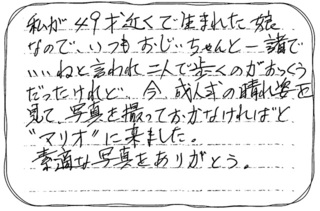 私が49才近くで生まれた娘
なので、いつもおじいちゃんと一諸で
いいねと言われ二人で歩くのがおっくう
だったけれど、今、成人式の晴れ姿を
見て、写真を撮っておかなければと
"マリオ"に来ました。
素適な写真をありがとう。